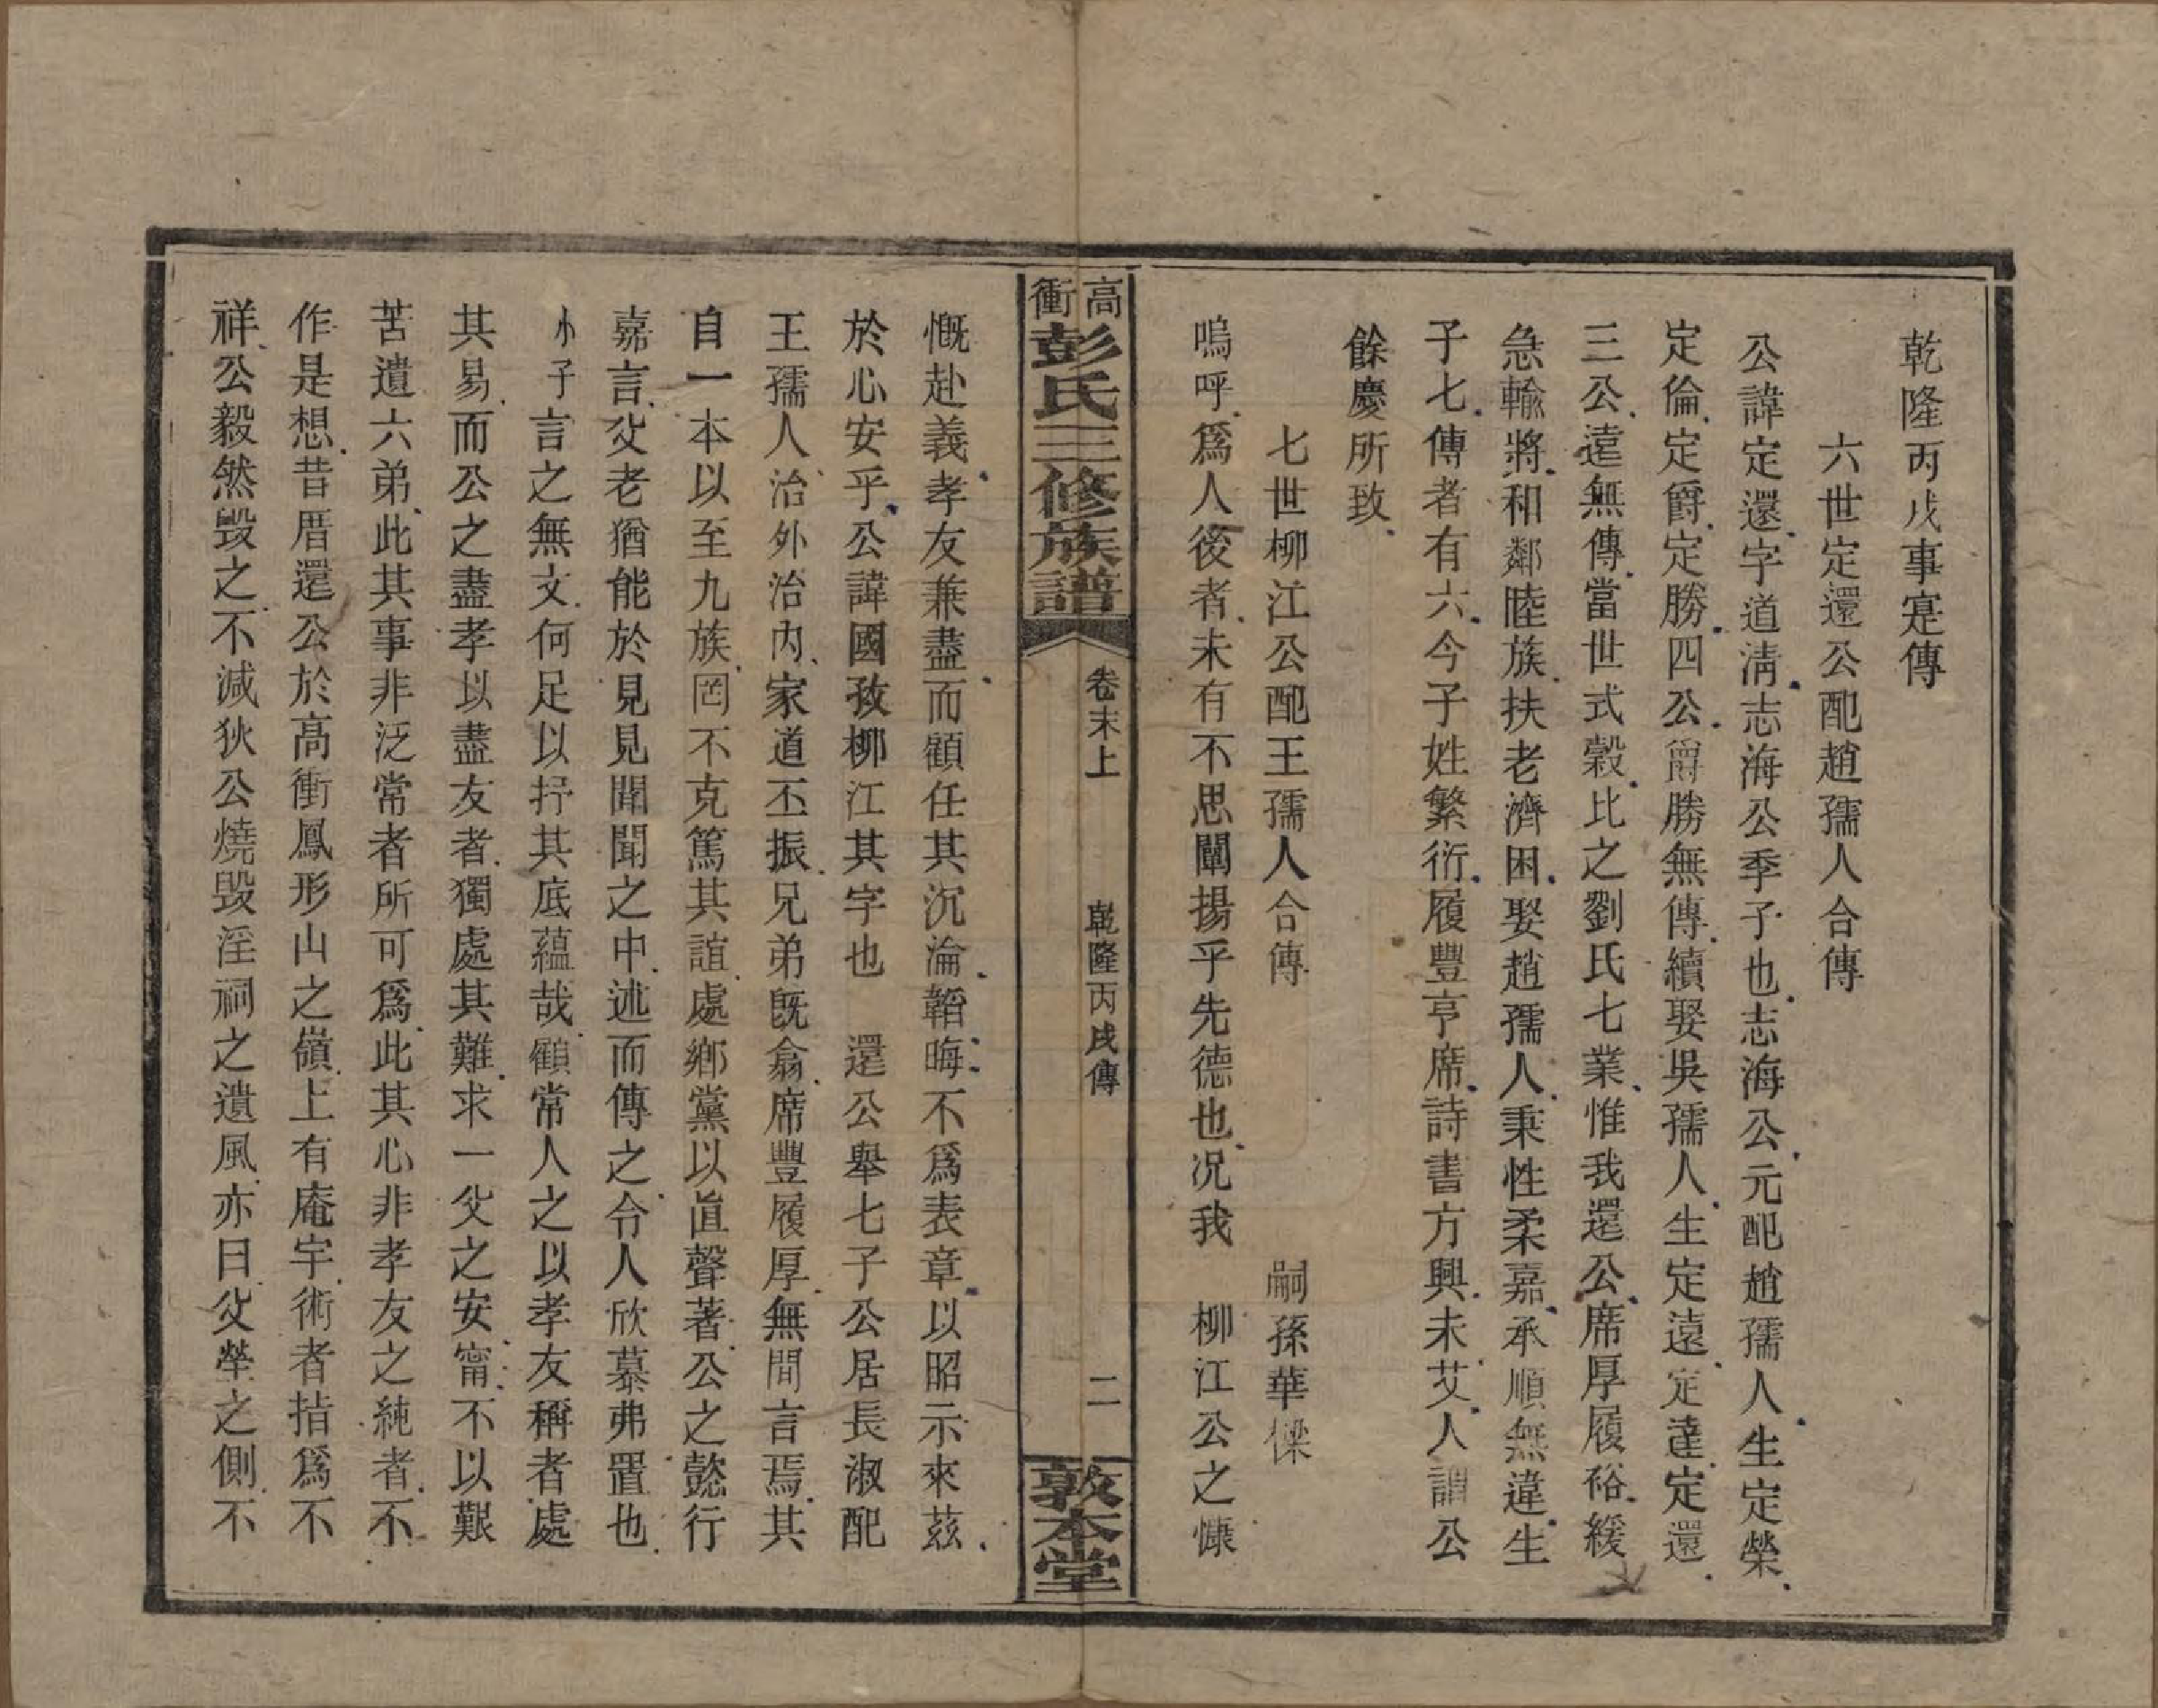 乾隆丙戌事寔傳
六世定還公配趙孺人合傳
公諱定還字道清志海公季子也志海公元配趙孺人生定榮
定倫定爵定勝四公爵勝無傳續娶吳孺人生定遠定達定還
三公遠無傳當世式穀比之劉氏七業惟我還公席厚履裕緩
急輸將和鄰睦族扶老濟困娶趙孺人秉性柔嘉承順無違生
子七傳者有六今子姓繁衍履豐亨席詩書方興未艾人謂公
餘慶所致
七世柳江公配王孺人合傳　嗣孫華檪
嗚呼為人後者未有不思闡揚乎先德也况我　柳江公之慷
高衝彭氏三修族譜　卷末上　乾隆丙戌傳　二　敦本堂
慨赴義孝友兼盡而顧任其沉淪韜晦不為表章以昭示來茲
於心安乎公諱國孜柳江其字也　還公舉七子公居長淑配
王孺人治外治內家道丕振兄弟既翕席豐履厚無間言焉其
自一本以至九族罔不克篤其誼處鄉黨以直聲著公之懿行
嘉言父老猶能於見見聞聞之中述而傳之令人欣慕弗置也
小子言之無文何足以抒其底蘊哉顧常人之以孝友稱者處
其易而公之盡孝以盡友者獨處其難求一父之安甯不以艱
苦遺六弟此其事非泛常者所可為此其心非孝友之純者不
作是想昔厝還公於高衝鳳形山之嶺上有庵宇術者指為不
祥公毅然毀之不減狄公燒毀淫祠之遺風亦曰父塋之側不